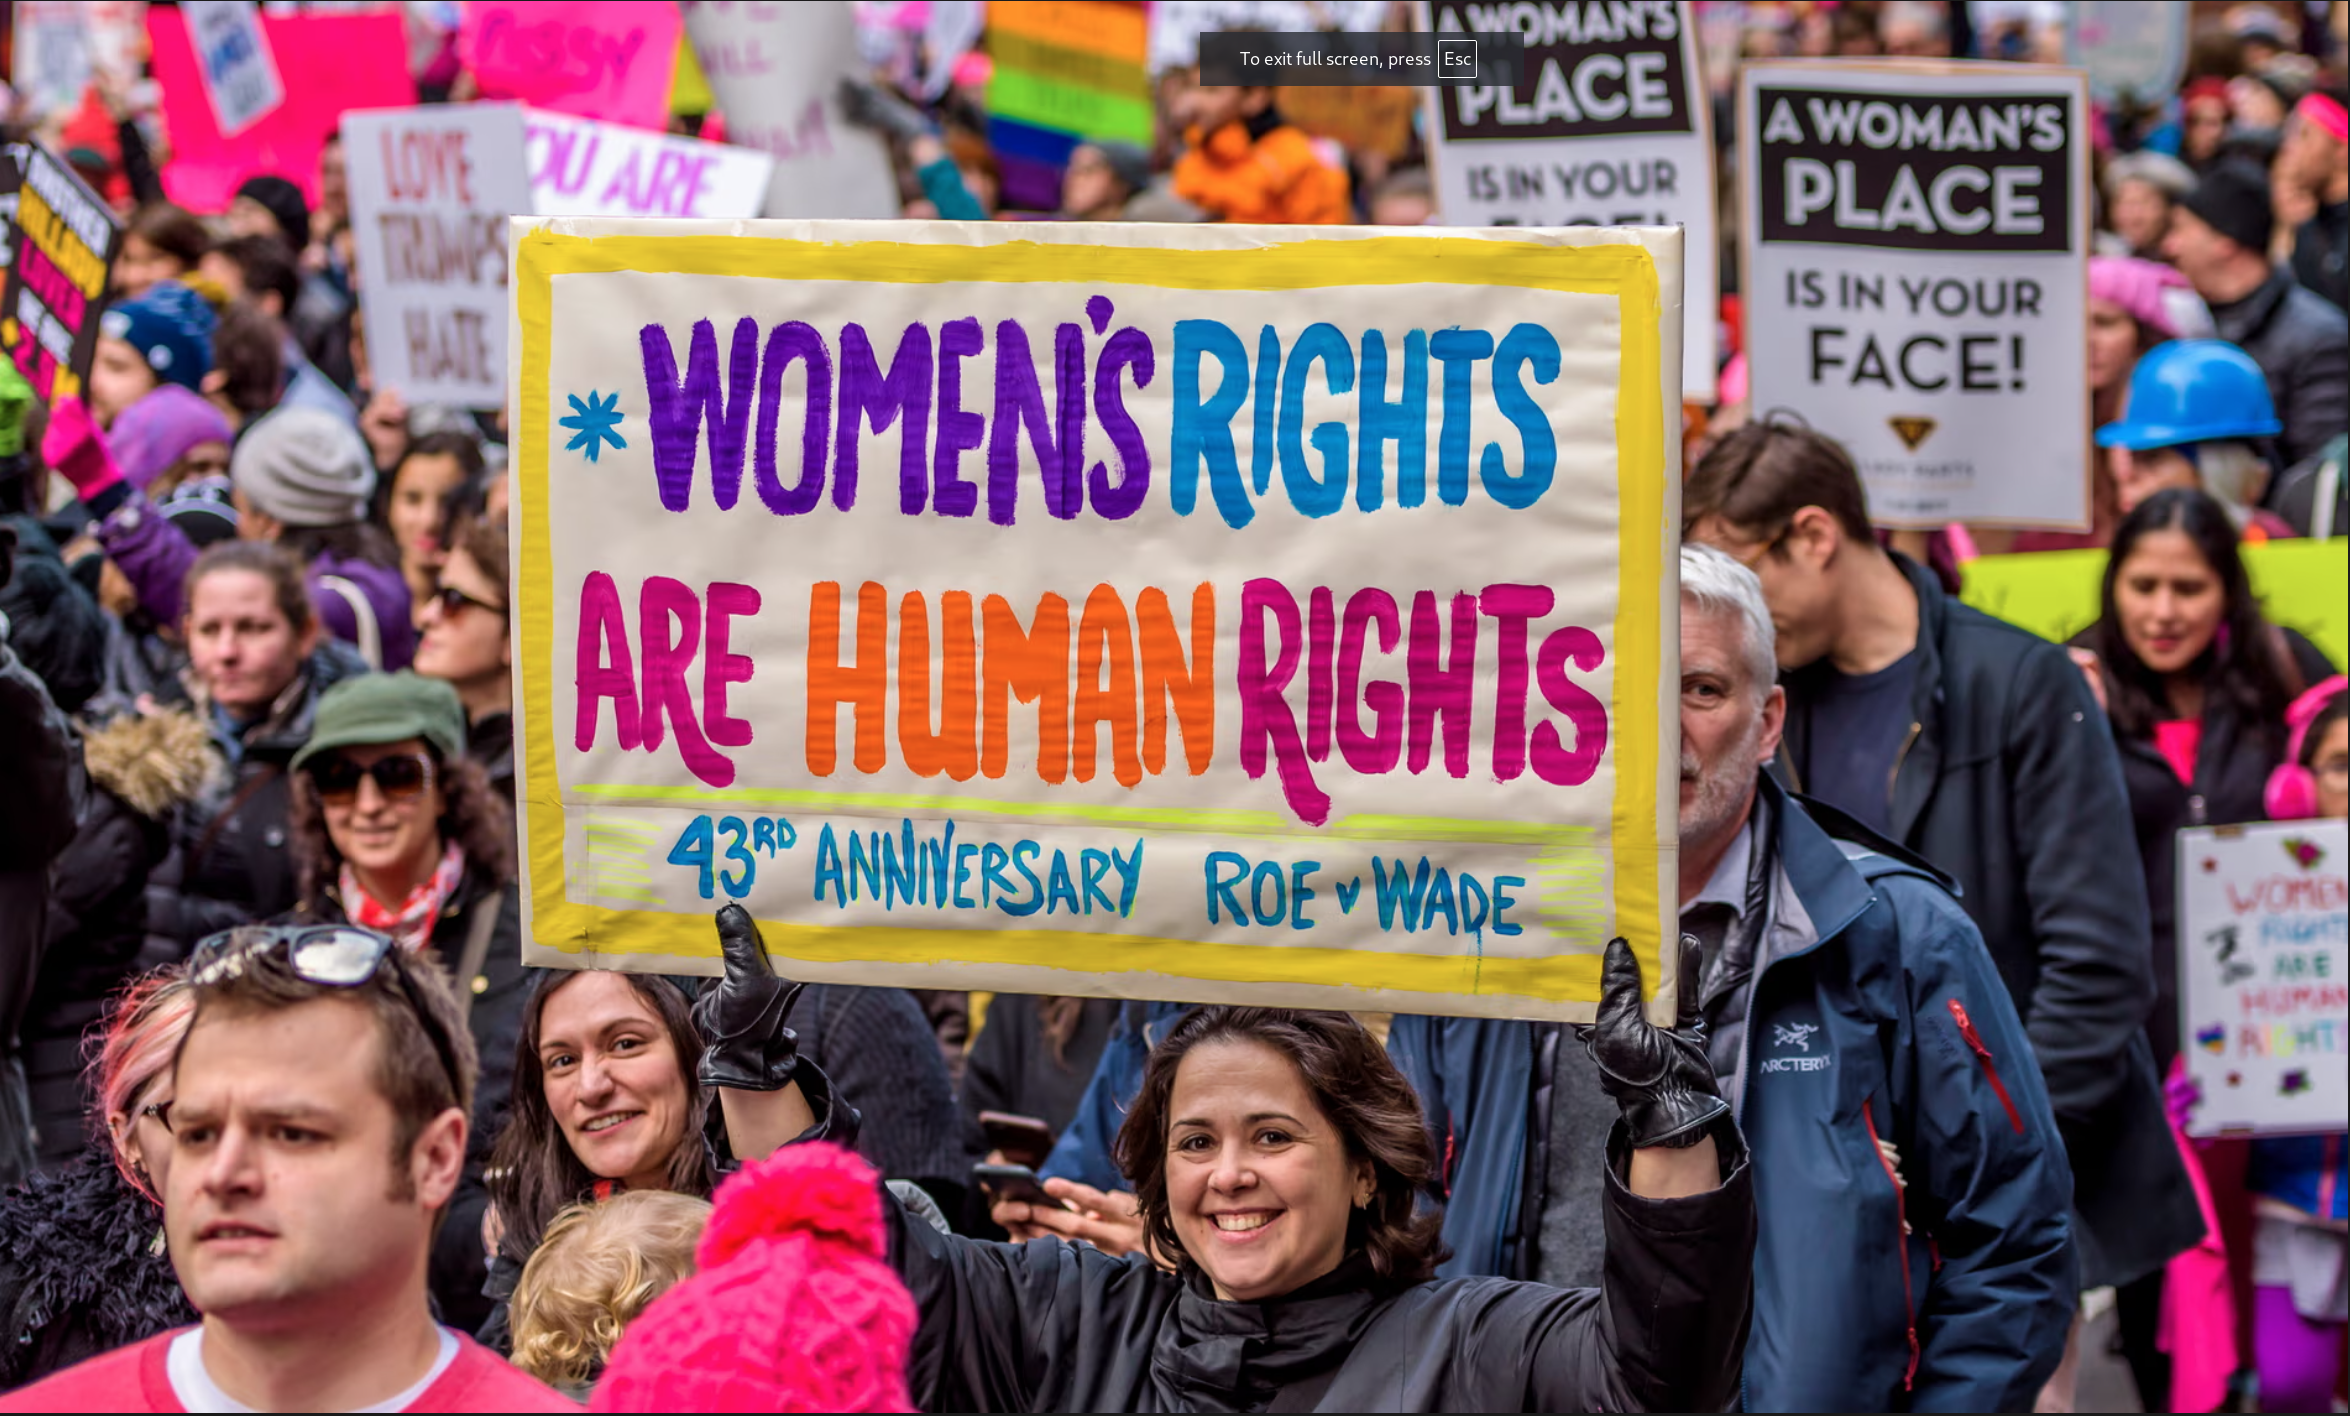 To exit full screen, press Esc
A WOMAN'S
PLACE
IS IN YOUR
A WOMAN'S
PLACE
IS IN YOUR
FACE!
LOVE
TRUMPS
HATE
YOU ARE
* WOMEN'S RIGHTS
ARE HUMAN RIGHTS
43RD ANNIVERSARY ROE v WADE
ARC'TERYX
WOMEN
RIGHT
ARE
HUMAN
RIGHT